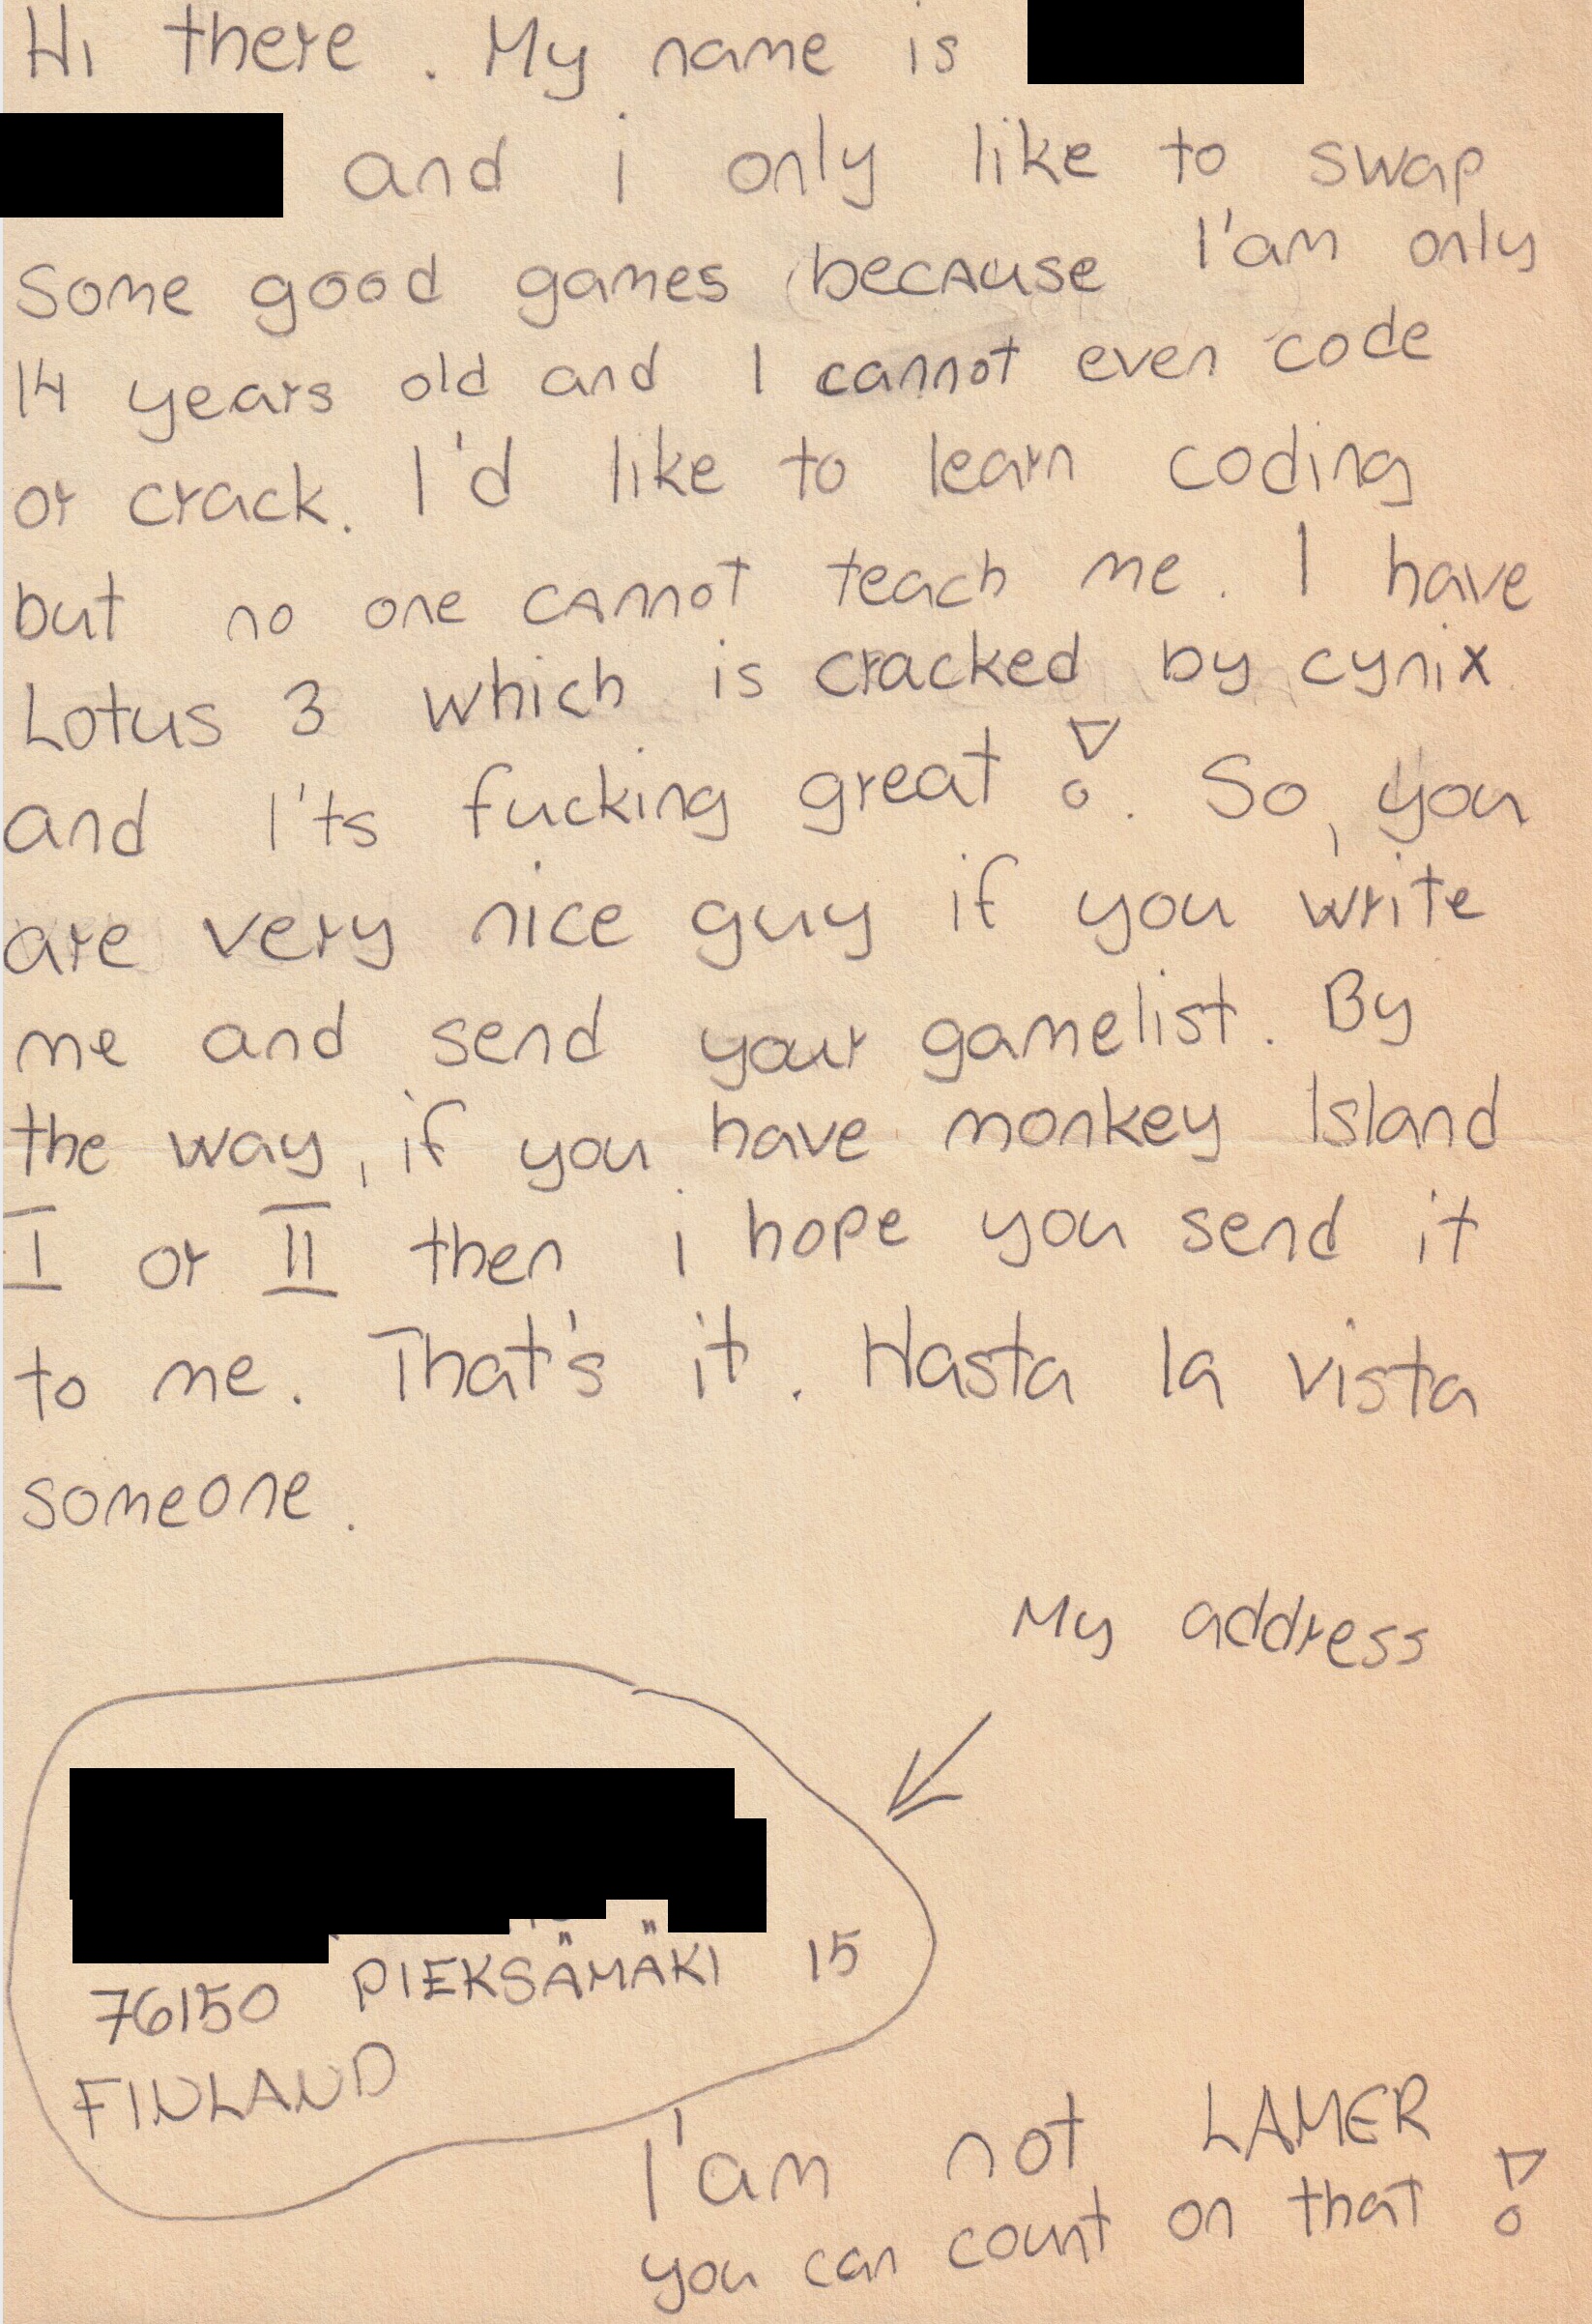 Hi there. My name is
and i only like to swap
some good games because I'am only
14 years old and I cannot even code
or crack. I'd like to learn coding
but no one cannot teach me. I have
Lotus 3 which is cracked by cynix
and I'ts fucking great!. So, you
are very nice guy if you write
me and send your gamelist. By
the way, if you have monkey Island
I or II then i hope you send it
to me. That's it. Hasta la vista
someone.
My address
76150 PIEKSÄMÄKI 15
FINLAND
I'am not LAMER
you can count on that!